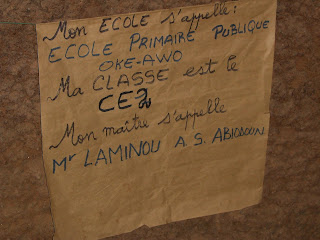 Mon ECOLE s'appelle:
ECOLE PRIMAIRE PUBLIQUE
OKE-AWO
Ma CLASSE est le
CE2
Mon maître s'appelle
Mr LAMINOU A S. ABIODOUN